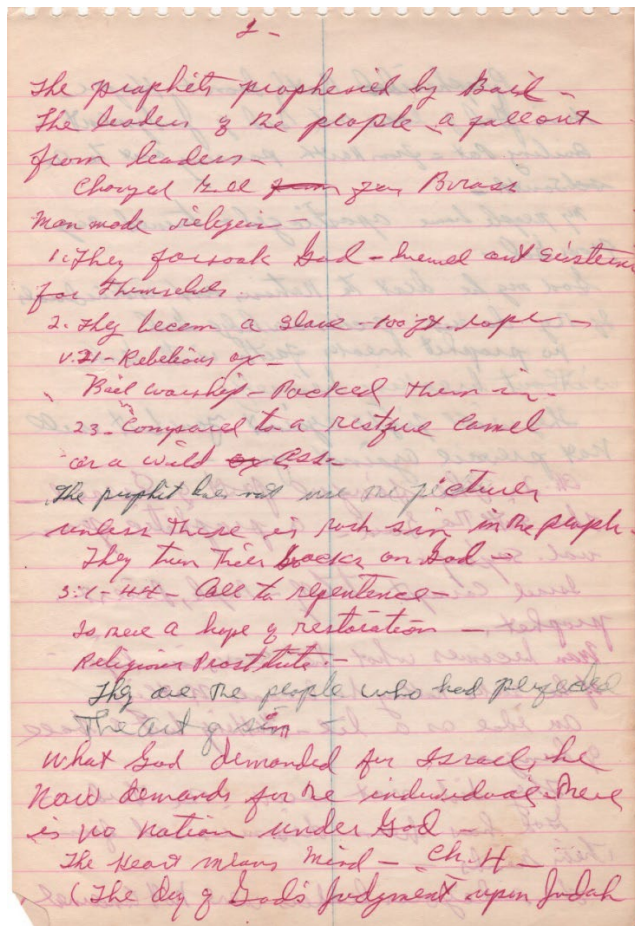 2-
The prophets prophesied by Bail -
The leaders of the people a fallout
from leaders -
Charged Gold for Brass
Man made religion -
1. They forsook God - hewed out Cisterns
for themselves.
2. They becom a slave -
V. 21 - Rebelious ox -
Bail worship - Packed them in -
23 - Compared to a restfue Camel
or a wild ox Ass -
The prophet does not use the pictures
unless there is such sin in the people -
They turn their backs on God -
3:1-4:4 - Call to repentence -
Is there a hope of restoration -
Religious Prostitute -
They are the people who had perfected
The art of sin
What God demanded for Israel, he
Now demands for the individual. There
is no Nation under God -
The Heart means Mind - Ch. 4 -
(The day of God's Judgment upon Judah